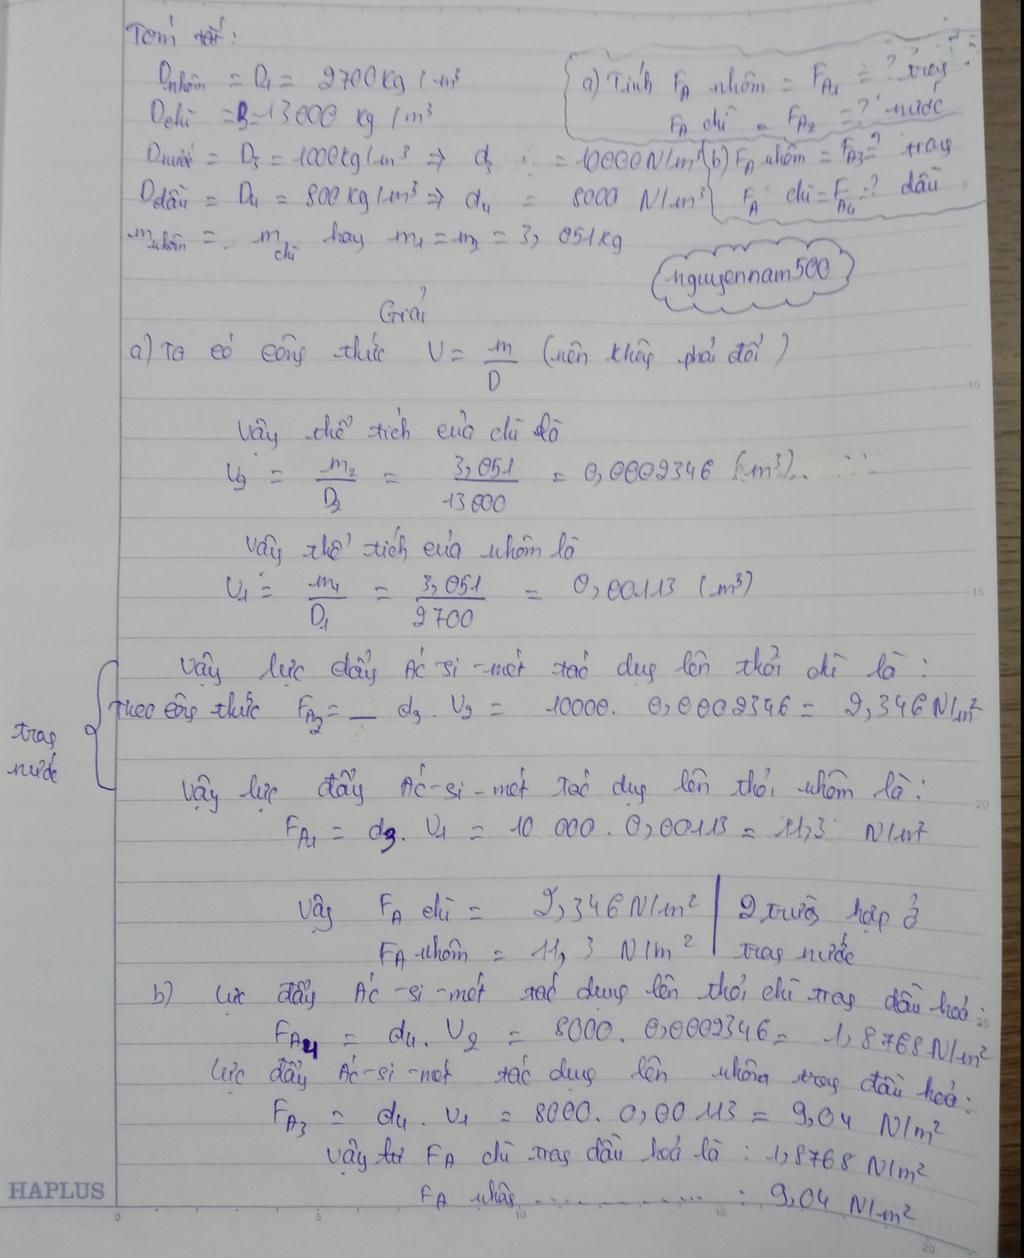 Tóm tắt:
Dnhôm = D1 = 2700kg/m³
Dchì = D2 = 13000 kg/m³
Dnước = D3 = 1000kg/m³ => d3 = 10000N/m³
Ddầu = D4 = 800kg/m³ => d4 = 8000 N/m³
mnhôm = mchì hay m1 = m2 = 3,051kg
a) Tính FA nhôm = FA1 = ? trong
FA chì = FA2 = ? nước
b) FA nhôm = FA3 = ? trong
FA chì = FA4 = ? dầu
nguyennam500
Giải
a) Ta có công thức V = m/D (nên không phải đổi)
Vậy thể tích của chì là
V2 = m2/D2 = 3,051/13000 = 0,0002346 (m³)
Vậy thể tích của nhôm là
V1 = m1/D1 = 3,051/2700 = 0,00113 (m³)
Vậy lực đẩy Ác-si-mét tác dụng lên thỏi chì là:
theo công thức FA2 = d3.V2 = 10000. 0,0002346 = 2,346 N/m²
trong
nước
Vậy lực đẩy Ác-si-mét tác dụng lên thỏi nhôm là:
FA1 = d3. V1 = 10 000. 0,00113 = 11,3 N/m²
Vậy FA chì = 2,346 N/m² | 2 trường hợp ở
FA nhôm = 11,3 N/m² | trong nước
b) Lực đẩy Ác-si-mét tác dụng lên thỏi chì trong dầu hoả:
FA4 = d4. V2 = 8000. 0,0002346 = 1,8768 N/m²
Lực đẩy Ác-si-mét tác dụng lên nhôm trong dầu hoả:
FA3 = d4. V1 = 8000. 0,00113 = 9,04 N/m²
Vậy FA chì trong dầu hoả là : 1,8768 N/m²
FA nhôm .................... : 9,04 N/m²
HAPLUS
10
15
20
25
0 5 10 15 20